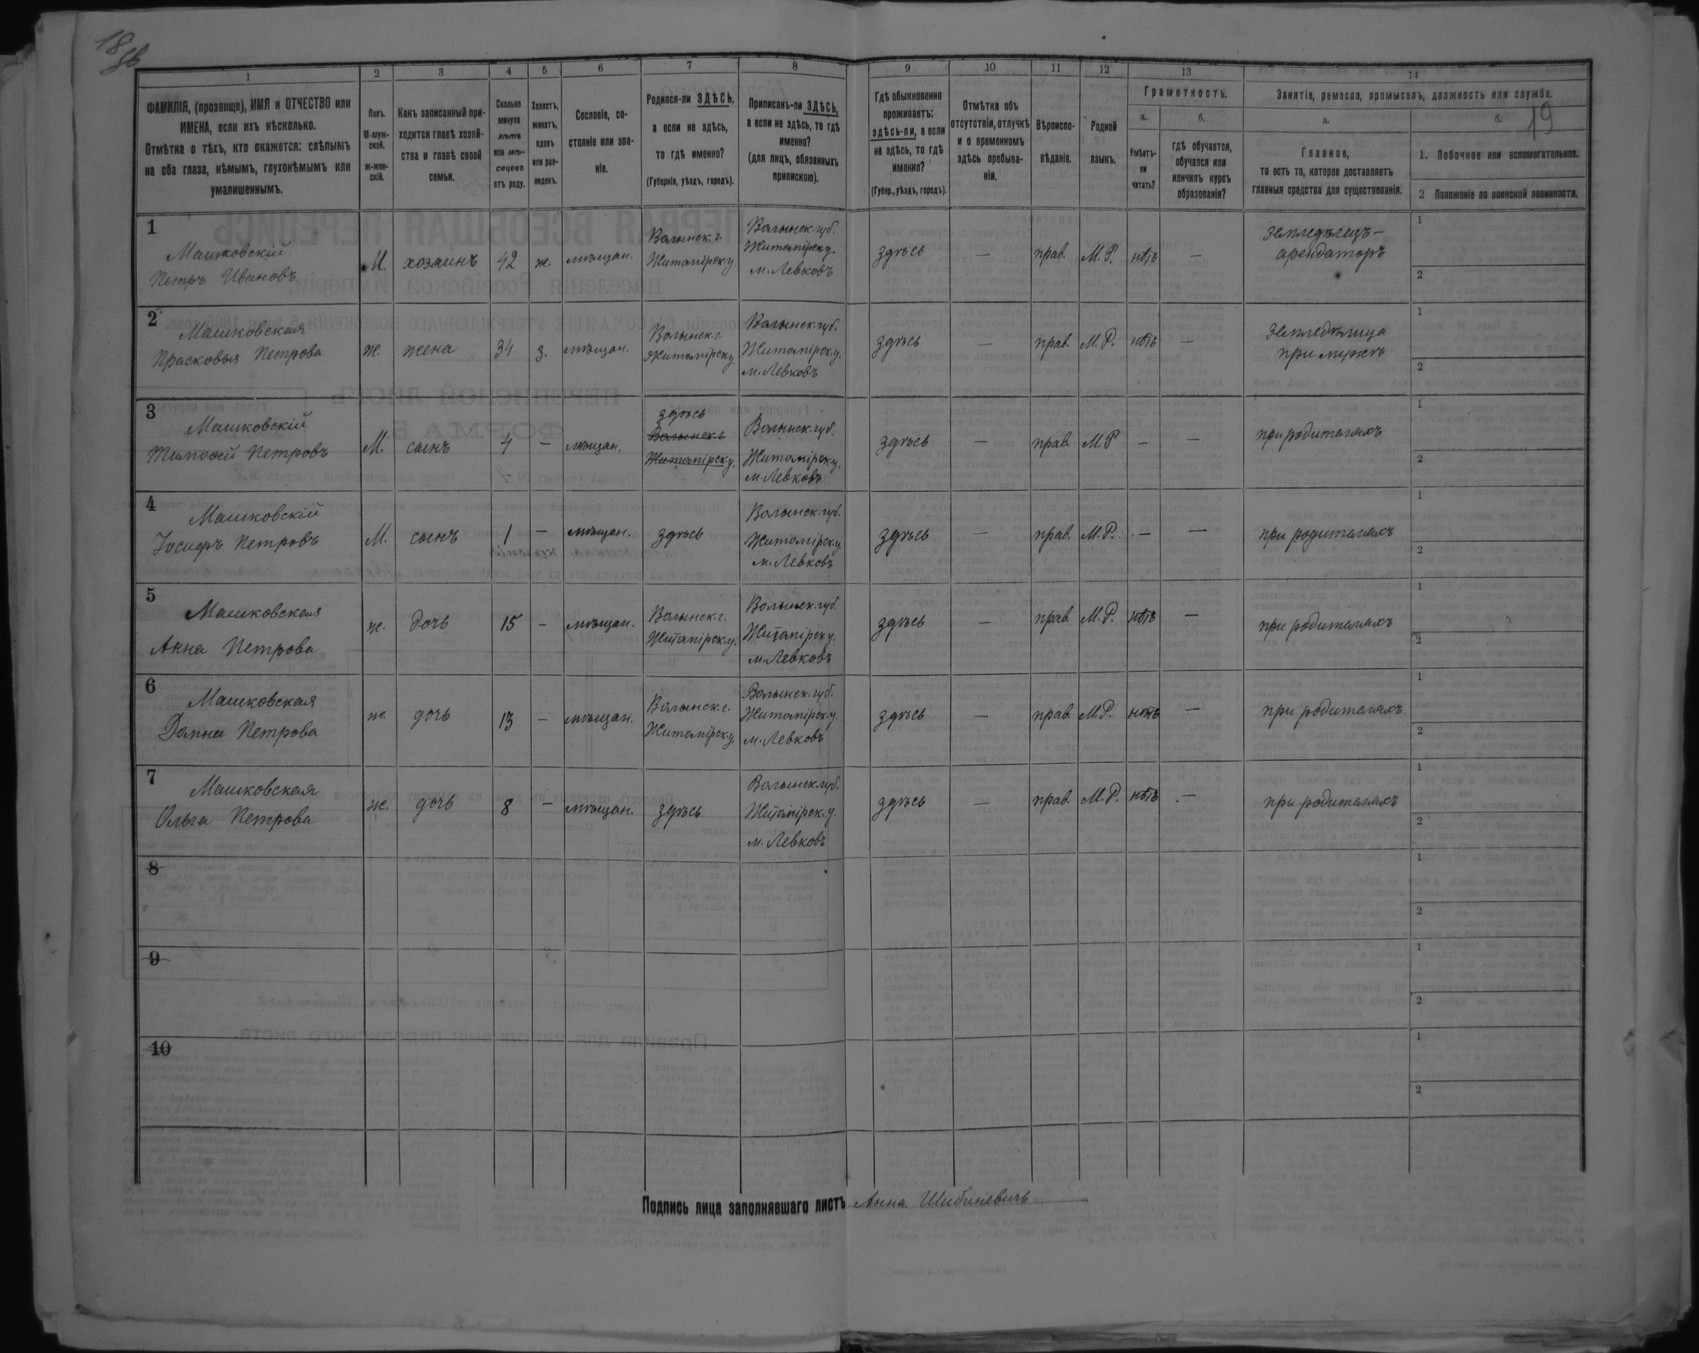 18
1 2 3 4 5 6 7 8 9 10 11 12 13 14
ФАМИЛІЯ, (прозвище), ИМЯ и ОТЧЕСТВО или
ИМЕНА, если ихъ нѣсколько.
Отмѣтка о тѣхъ, кто окажется: слѣпымъ
на оба глаза, нѣмымъ, глухонѣмымъ или
умалишеннымъ.
Полъ.
М-муж-
ской.
ж-жен-
скій.
Какъ записанный при-
ходится главѣ хозяй-
ства и главѣ своей
семьи.
Сколько
минуло
лѣтъ
или мѣ-
сяцевъ
отъ роду.
Холостъ,
женатъ,
вдовъ
или раз-
веденъ.
Сословіе, со-
стояніе или зва-
ніе.
Родился-ли ЗДѢСЬ,
а если не здѣсь,
то гдѣ именно?
(Губернія, уѣздъ, городъ).
Приписанъ-ли ЗДѢСЬ,
а если не здѣсь, то гдѣ
именно?
(для лицъ, обязанныхъ
припискою).
Гдѣ обыкновенно
проживаетъ:
здѣсь-ли, а если
не здѣсь, то гдѣ
именно?
(Губер., уѣздъ, городъ).
Отмѣтка объ
отсутствіи, отлучкѣ
и о временномъ
здѣсь пребыва-
ніи.
Вѣроиспо-
вѣданіе.
Родной
языкъ.
Грамотность.
а. б.
Умѣетъ-
ли
читать?
гдѣ обучается,
обучался или
кончилъ курсъ
образованія?
Занятіе, ремесло, промыселъ, должность или служба.
а. б. 19
Главное,
то есть то, которое доставляетъ
главныя средства для существованія.
1. Побочное или вспомогательное.
2 Положеніе по воинской повинности.
1
Машковскій
Петръ Ивановъ
М. хозяинъ 42 ж. мѣщан.
Волынск. г.
Житомірск. у
Волынск. губ.
Житомірск у.
м. Левковъ
здѣсь — прав. М. Р. нѣтъ —
Земледѣлецъ-
арендаторъ
1
2
2
Машковская
Прасковья Петрова
ж. жена 34 з. мѣщан.
Волынск. г.
Житомірск у
Волынск. губ.
Житомірск. у.
м. Левковъ
здѣсь — прав. М. Р. нѣтъ —
Земледѣлица
при мужѣ
1
2
3
Машковскій
Тимофей Петровъ
М. сынъ 4 — мѣщан.
здѣсь
Волынск. г
Житомірск у.
Волынск. губ.
Житомірск у.
м. Левковъ
здѣсь — прав. М Р — —
при родителяхъ
1
2
4
Машковскій
Іосифъ Петровъ
М. сынъ 1 — мѣщан.
здѣсь
Волынск. губ.
Житомірск. у
м. Левковъ
здѣсь — прав. М. Р. — —
при родителяхъ
1
2
5
Машковская
Анна Петрова
ж. дочь 15 — мѣщан.
Волынск. г.
Житомірск. у.
Волынск губ.
Житомірск у.
м. Левковъ
здѣсь — прав М. Р. нѣтъ —
при родителяхъ
1
2
6
Машковская
Домна Петрова
ж. дочь 13 — мѣщан.
Волынск. г.
Житомірск у.
Волынск. губ.
Житомірск у
м. Левковъ
здѣсь — прав. М Р. нѣтъ —
при родителяхъ
1
2
7
Машковская
Ольга Петрова
ж. дочь 8 — мѣщан.
здѣсь
Волынск губ.
Житомірск. у.
м. Левковъ
здѣсь — прав. М. Р. нѣтъ —
при родителяхъ
1
2
8
1
2
9
1
2
10
1
2
Подпись лица заполнявшаго листъ Анна Шибиневичъ